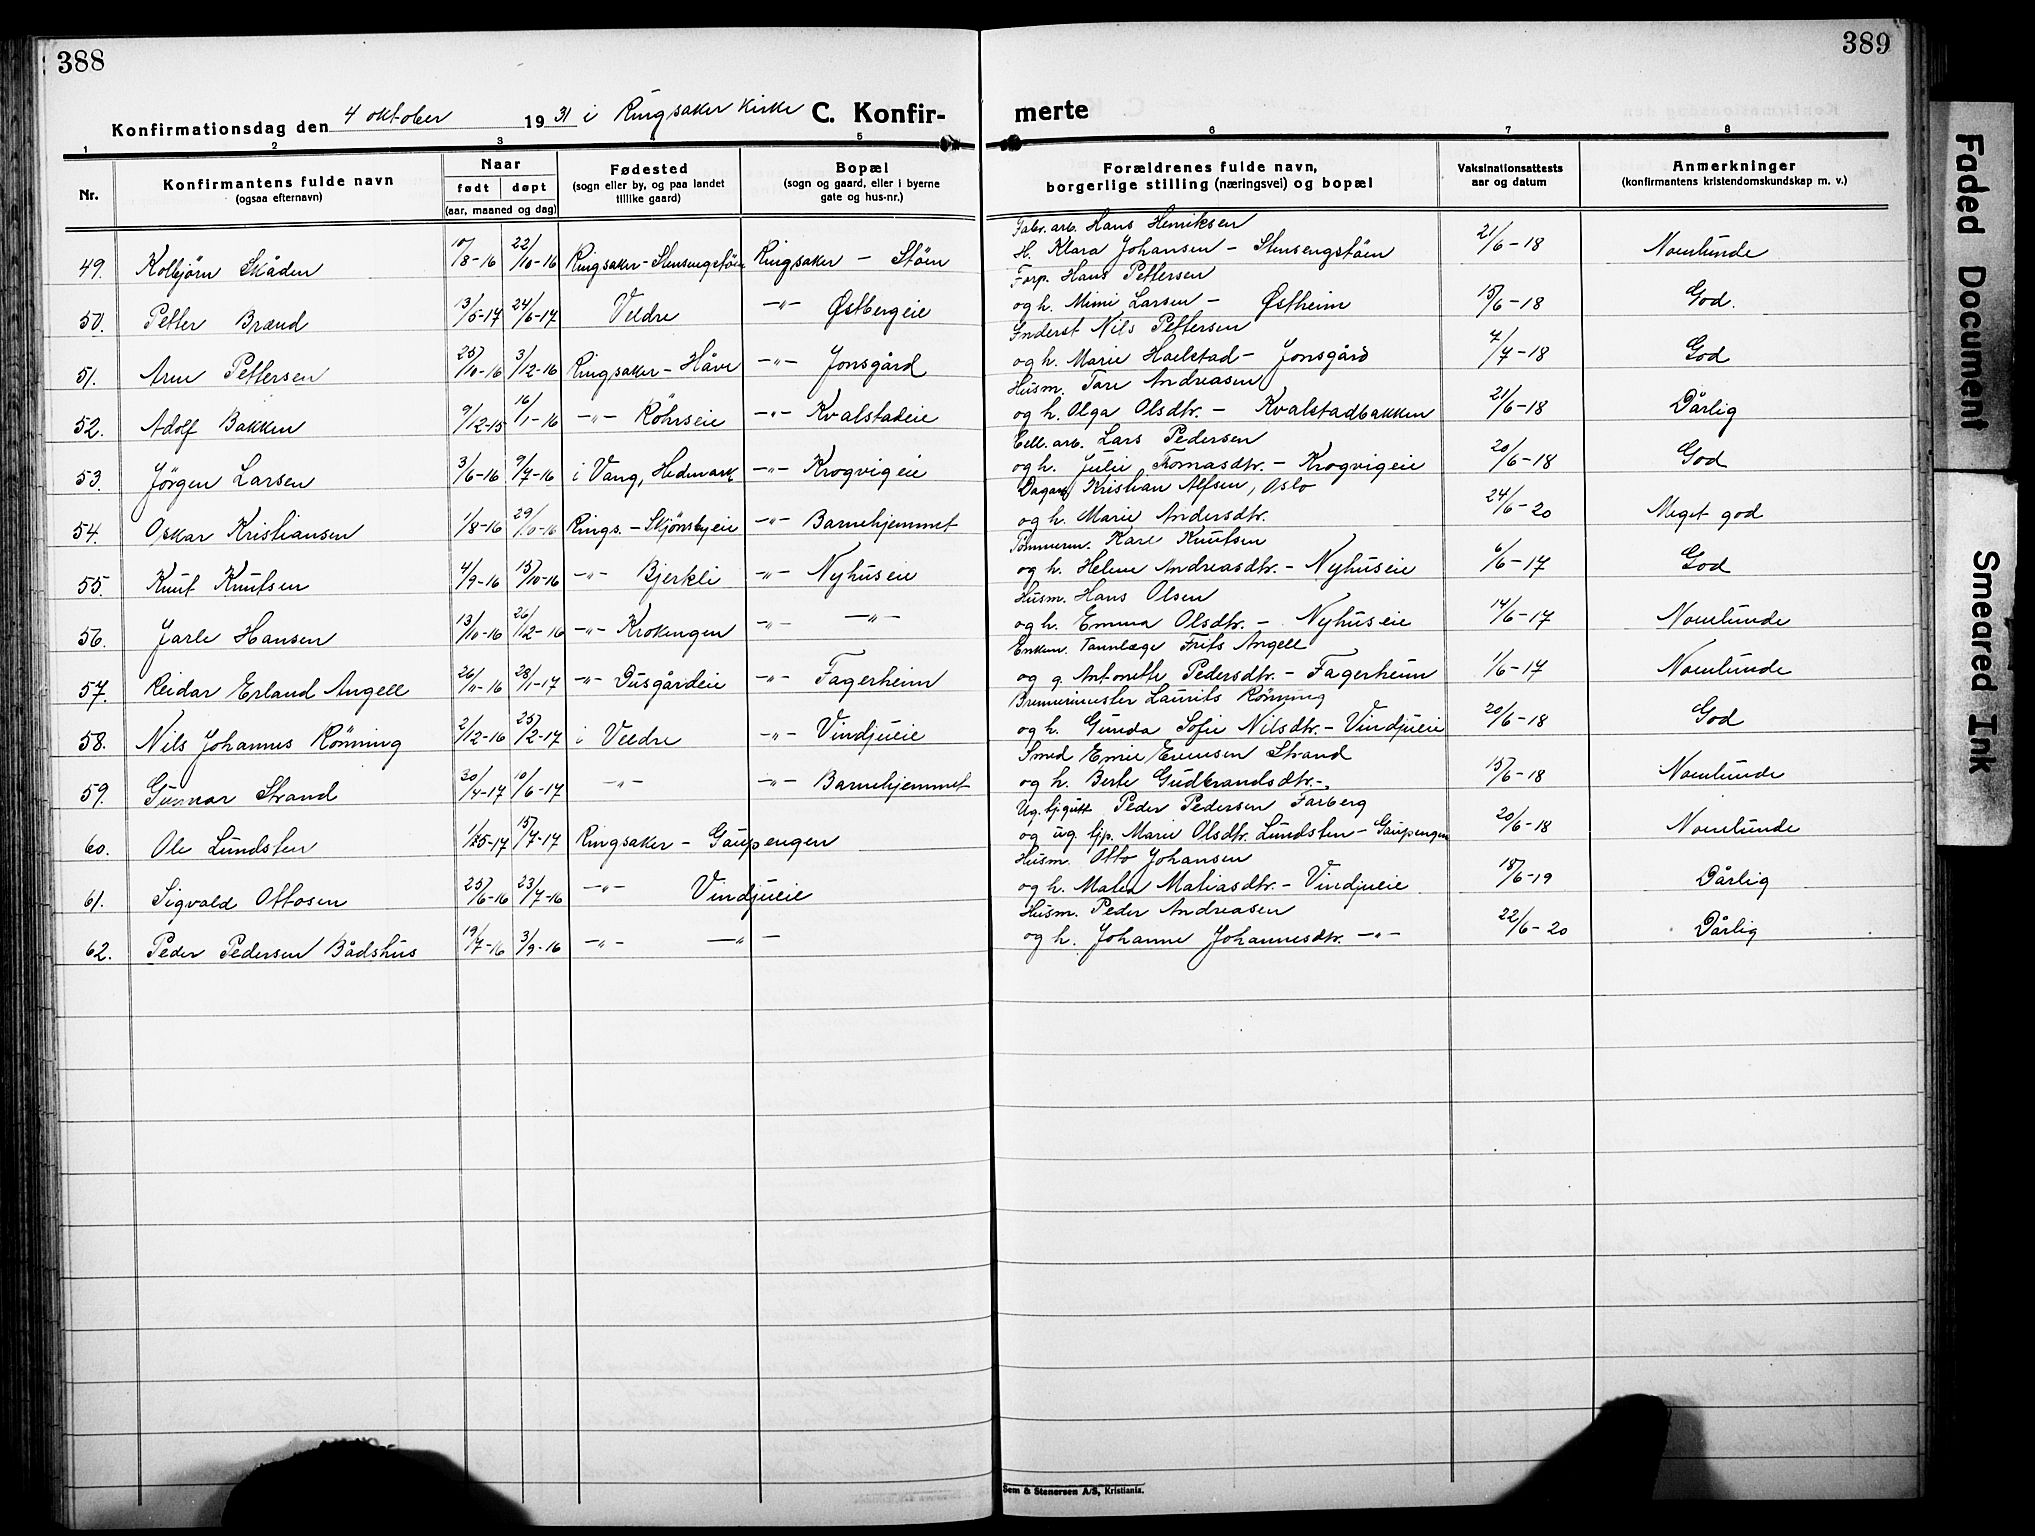 388
Konfirmationsdag den 4 oktober 1931 i Ringsaker Kirke C. Konfir-
1 2 3 4 5
Nr. Konfirmantens fulde navn (ogsaa efternavn) Naar født døpt (aar, maaned og dag) Fødested (sogn eller by, og paa landet tillike gaard) Bopæl (sogn og gaard, eller i byerne gate og hus-nr.)
49. Kolbjörn Skåden 10/8-16 22/10-16 Ringsaker-Stensengstöen Ringsaker - Stöen
50. Petter Brænd 3/5-17 24/6-17 Veldre -"- Østbergeie
51. Arne Pettersen 25/10-16 3/12-16 Ringsaker - Håve -"- Jonsgård
52. Adolf Bakken 9/12-15 16/1-16 -"- Röhrseie -"- Kvalstadeie
53. Jörgen Larsen 3/6-16 9/7-16 i Vang, Hedmark -"- Krogvigeie
54. Oskar Kristiansen 1/8-16 29/10-16 Rings. - Skjönsbyeie -"- Barnehjemmet
55. Knut Knutsen 4/9-16 15/10-16 -"- Bjerkli -"- Nyhuseie
56. Jarle Hansen 13/10-16 26/12-16 -"- Krokengen -"- -"-
57. Reidar Erland Angell 26/11-16 28/1-17 -"- Dusgårdeie -"- Fagerheim
58. Nils Johannes Rönning 2/12-16 25/2-17 i Veldre -"- Vindjueie
59. Gunnar Strand 30/4-17 10/6-17 -"- -"- Barnehjemmet
60. Ole Lundsten 1/5-17 15/7-17 Ringsaker - Gaupengen
61. Sigvald Ottosen 25/6-16 23/7-16 -"- Vindjueie
62. Peder Pedersen Bådshus 19/7-16 3/9-16 -"- -"-
389
merte
6 7 8
Forældrenes fulde navn, borgerlige stilling (næringsvei) og bopæl Vaksinationsattests aar og datum Anmerkninger (konfirmantens kristendomskundskap m. v.)
Fabr. arb. Hans Henriksen
H. Klara Johansen - Stensengstöen 21/6-18 Noenlunde
Forp. Hans Pettersen
og h. Mimi Larsen - Østheim 15/6-18 God.
Nils Pettersen
og h. Marie Haelstad - Jonsgård 7/7-18 God
Husm. Tore Andreasen
og h. Olga Olsdtr. - Kvalstadbakken 21/6-18 Dårlig
Cell. arb. Lars Pedersen
og h. Julie Tomasdtr. - Krogvigeie 20/6-18 God
Kristian Alfsen, Oslo
og h. Marie Andersdtr. 24/6-20 Meget god
Tömmerm. Karl Knutsen
og h. Helene Andreasdtr. - Nyhuseie 6/6-17 God
Husm. Hans Olsen
og h. Emma Olsdtr. - Nyhuseie 14/6-17 Noenlunde
Enkem. Tannlæge Frits Angell
og g. Antonette Pedersdtr. - Fagerheim 1/6-17 Noenlunde
Brennerimester Laurits Rönning
og h. Gunda Sofie Nilsdtr. - Vindjueie 20/6-18 God
Smed Emil Evensen Strand
og h. Berte Gudbrandsdtr. - 15/6-18 Noenlunde
Ug. tj.gutt Peder Pedersen Farberg
og ug. tjp. Marie Olsdtr. Lundsten - Gaupengen 20/6-18 Noenlunde
Husm. Otto Johansen
og h. Malea Matiasdtr. - Vindjueie 18/6-19 Dårlig
Husm. Peder Andreasen
og h. Johanne Johannesdtr. -"- 22/6-20 Dårlig
Sem & Stenersen A/S, Kristiania.
Faded Document
Smeared Ink